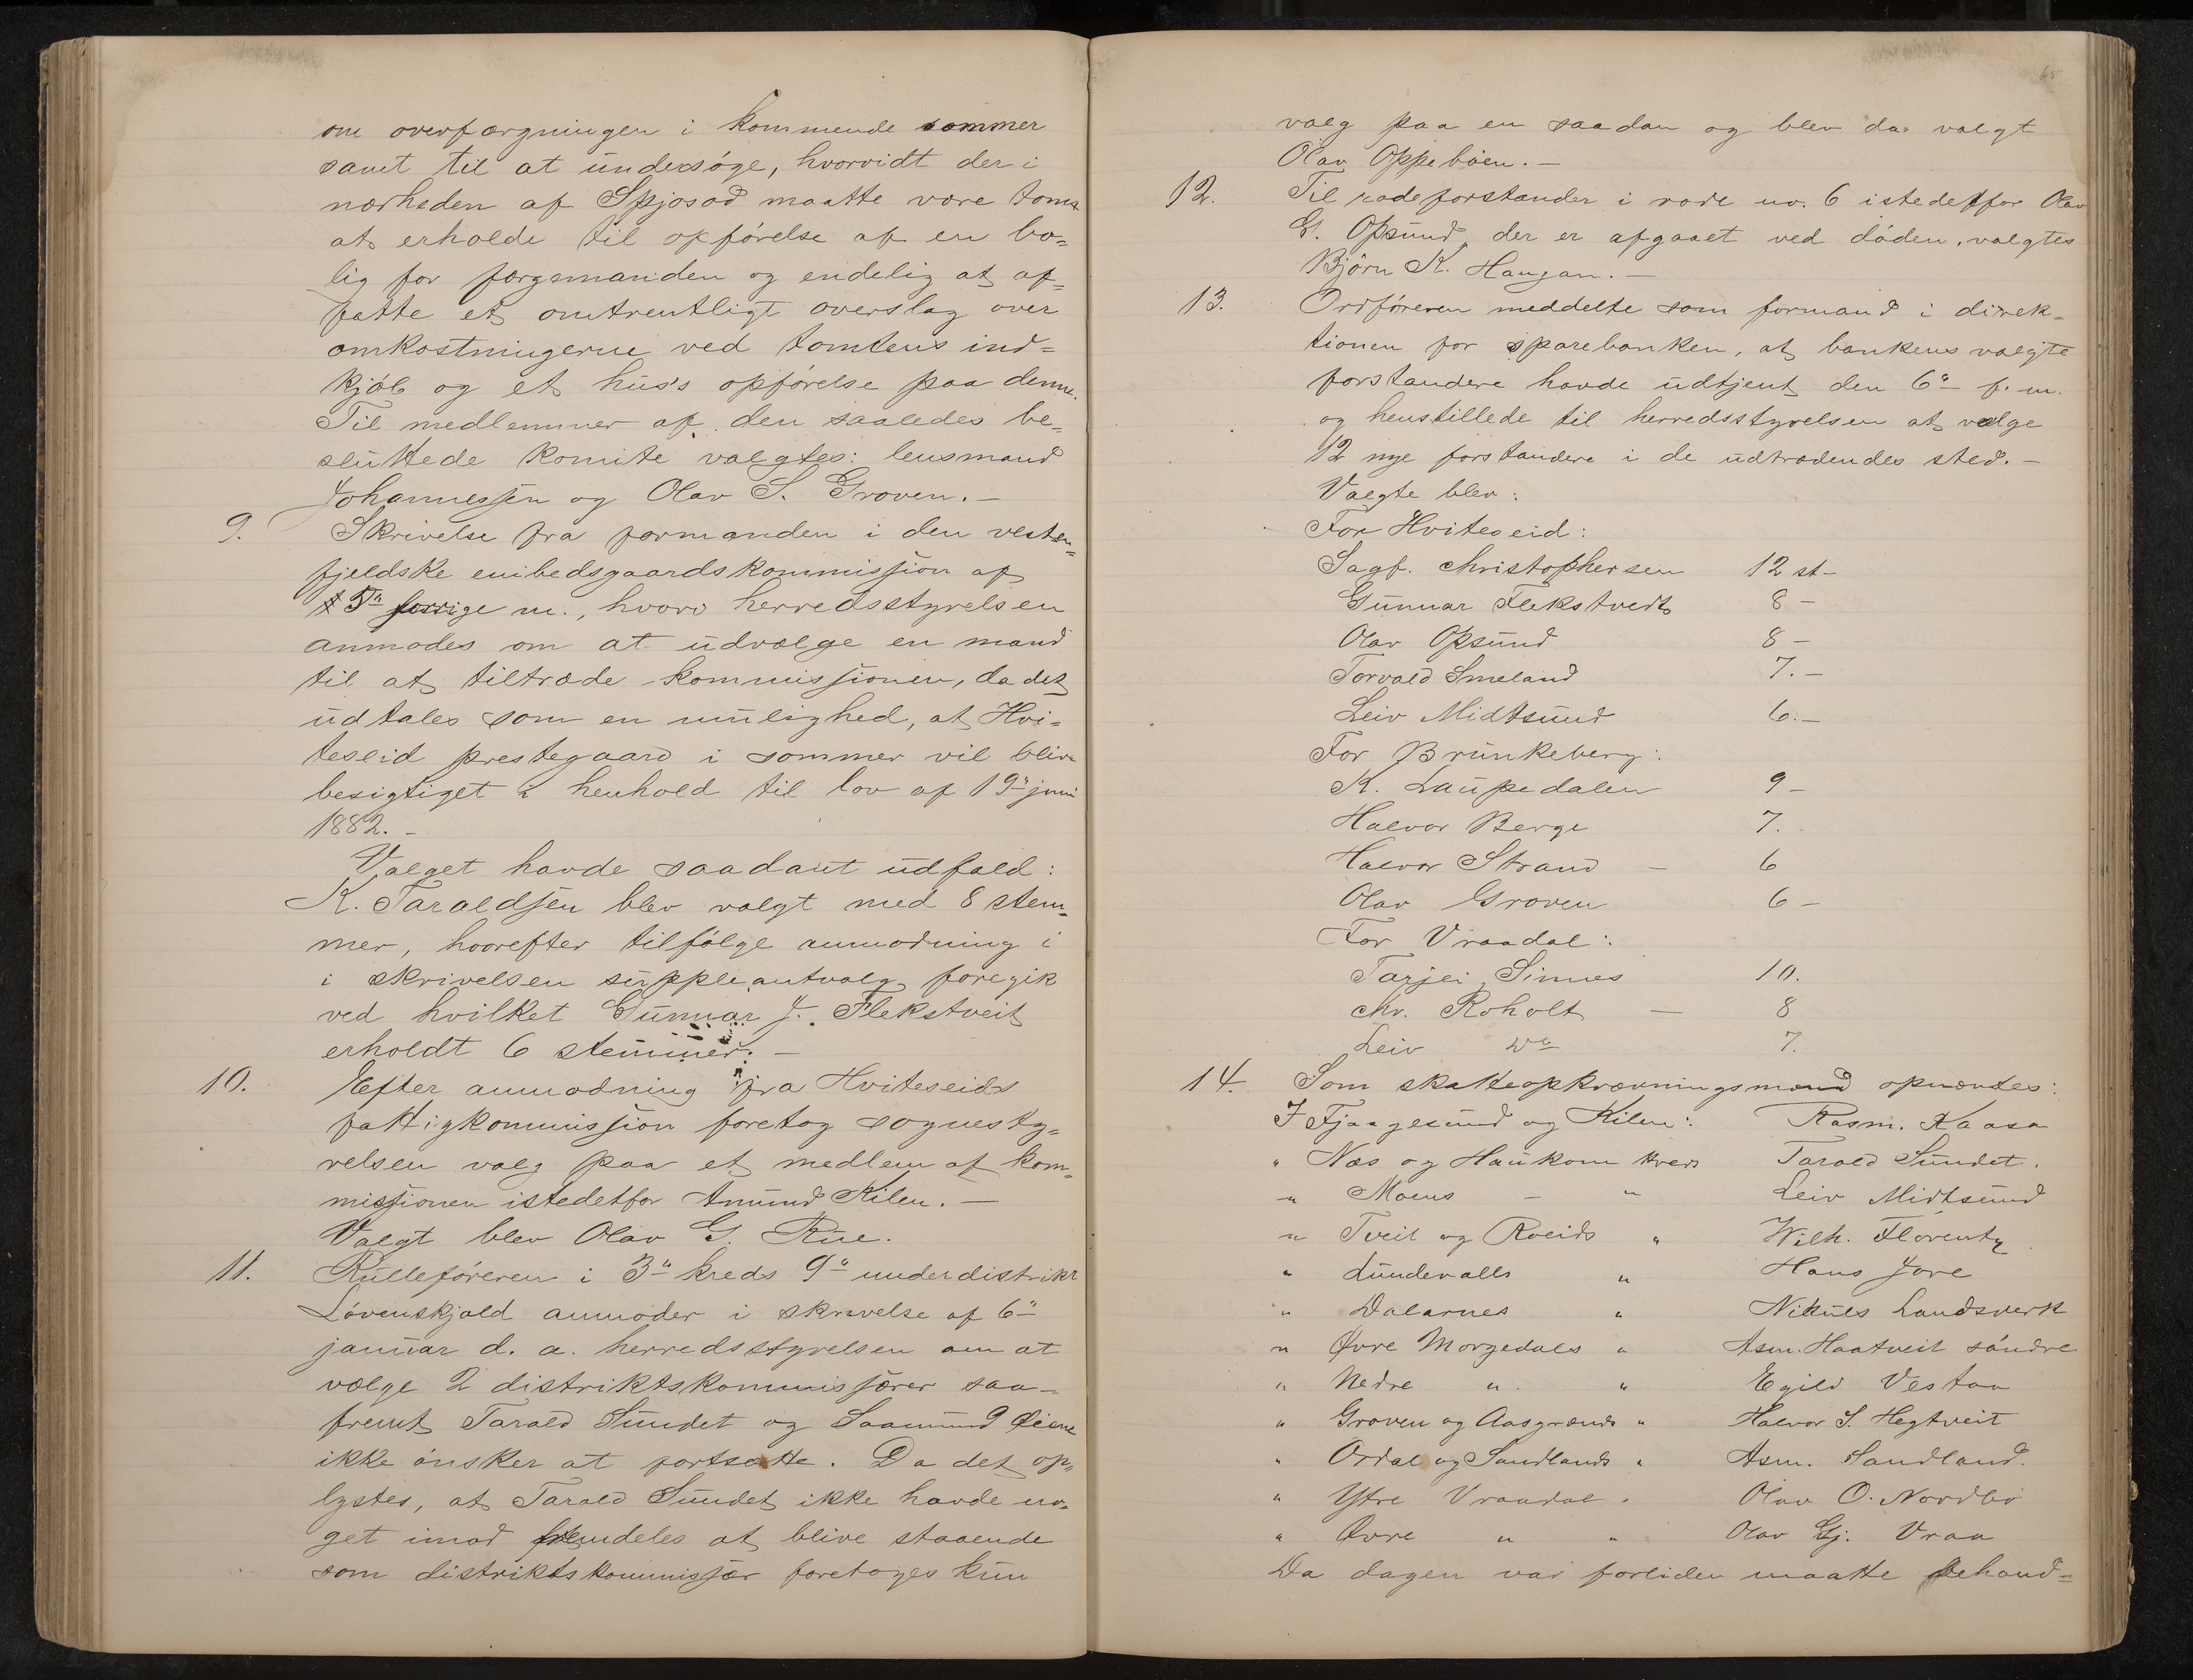 om overfærgningen i kommende sommer
samt til at undersöge, hvorvidt der i
nærheden af Spjosod maatte være tomt
at erholde til opförelse af en bo-
lig for færgemanden og endelig at af-
fatte et omtrentligt overslag over
omkostningerne ved tomtens ind=
kjöb og et hus's opförelse paa denne.
Til medlemmer af den saaledes be-
sluttede komite valgtes: lensmand
Johannessen og Olav S. Groven.—
9. Skrivelse fra formanden i den vesten-
fjeldske embedsgaardskommission af
5" forrige m., hvorv herredsstyrelsen
anmodes om at udvælge en mand
til at tiltræde kommissionen, da det
udtales som en mulighed, at Hvi-
teseid prestegaard i sommer vil blive
besigtiget i henhold til lov af 19" juni
1882.—
Valget havde saadant udfald:
K. Taraldsen blev valgt med 8 stem-
mer, hvorefter tilfölge anmodning i
i skrivelsen suppleantvalg foregik
ved hvilket Gunnar J. Flekstveit
erholdt 6 stemmer.—
10. Efter anmodning fra Hviteseids
fattigkommission foretog sognesty-
relsen valg paa et medlem af kom-
missionen istedetfor Amund Kilen.—
Valgt blev Olav G. Rue.
11. Rulleföreren i 3" kreds 9" underdistrikt
Lövenskjold anmoder i skrivelse af 6"
januar d. a. herredsstyrelsen om at
vælge 2 distriktskommissærer saa-
fremt Tarald Sundet og Saamund
ikke önsker at fortsætte. Da det op-
lystes, at Tarald Sundet ikke havde no-
get imod fremdeles at blive staaende
som distriktskommissær foretoges kun
valg paa en saadan og blev da valgt
Olav Oppeböen.—
12. Til rodeforstander i rode no. 6 istedetfor Olav
G. Opsund, der er afgaaet ved döden, valgtes
Björn K. Haugan.—
13. Ordföreren meddelte som formand i direk-
tionen for sparebanken, at bankens valgte
forstandere havde udtjent den 6" f. m.
og henstillede til herredsstyrelsen at vælge
12 nye forstandere i de udtrædendes sted.—
Valgte blev:
For Hviteseid:
Sagf. Christophersen 12 st—
Gunnar Flekstvedt 8—
Olav Opsund 8—
Torvald Smeland 7.—
Leiv Midtsund 6.—
For Brunkeberg:
K. Laupedalen 9—
Halvor Berge 7.
Halvor Strand — 6
Olav Groven 6—
For Vraadal:
Tarjei Sinnes 10.
Chr. Roholt — 8
Leiv do 7.
14. Som skatteopkrævningsmænd opnævntes:
I Fjaagesund og Kilen: Rasm. Kaasa
" Næs og Haukom kreds Tarald Sundet.
" Moens — " Leiv Midtsund
" Tveit og Roeids " Wilh. Florentz
" Lundevalls " Hans Jore
" Dalarnes " Nikuls Landsverk
" Øvre Morgedals " Asm. Haatveit söndre
" Nedre " " Egild Vestaa
" Groven og Aasgrænds " Halvor S. Hegtveit
" Ordal og Sandlands " Asm. Sandland.
" Ytre Vraadal " Olav O. Nordbö
" Øvre " " Olav Gj. Vraa
Da dagen var forliden maatte behand=